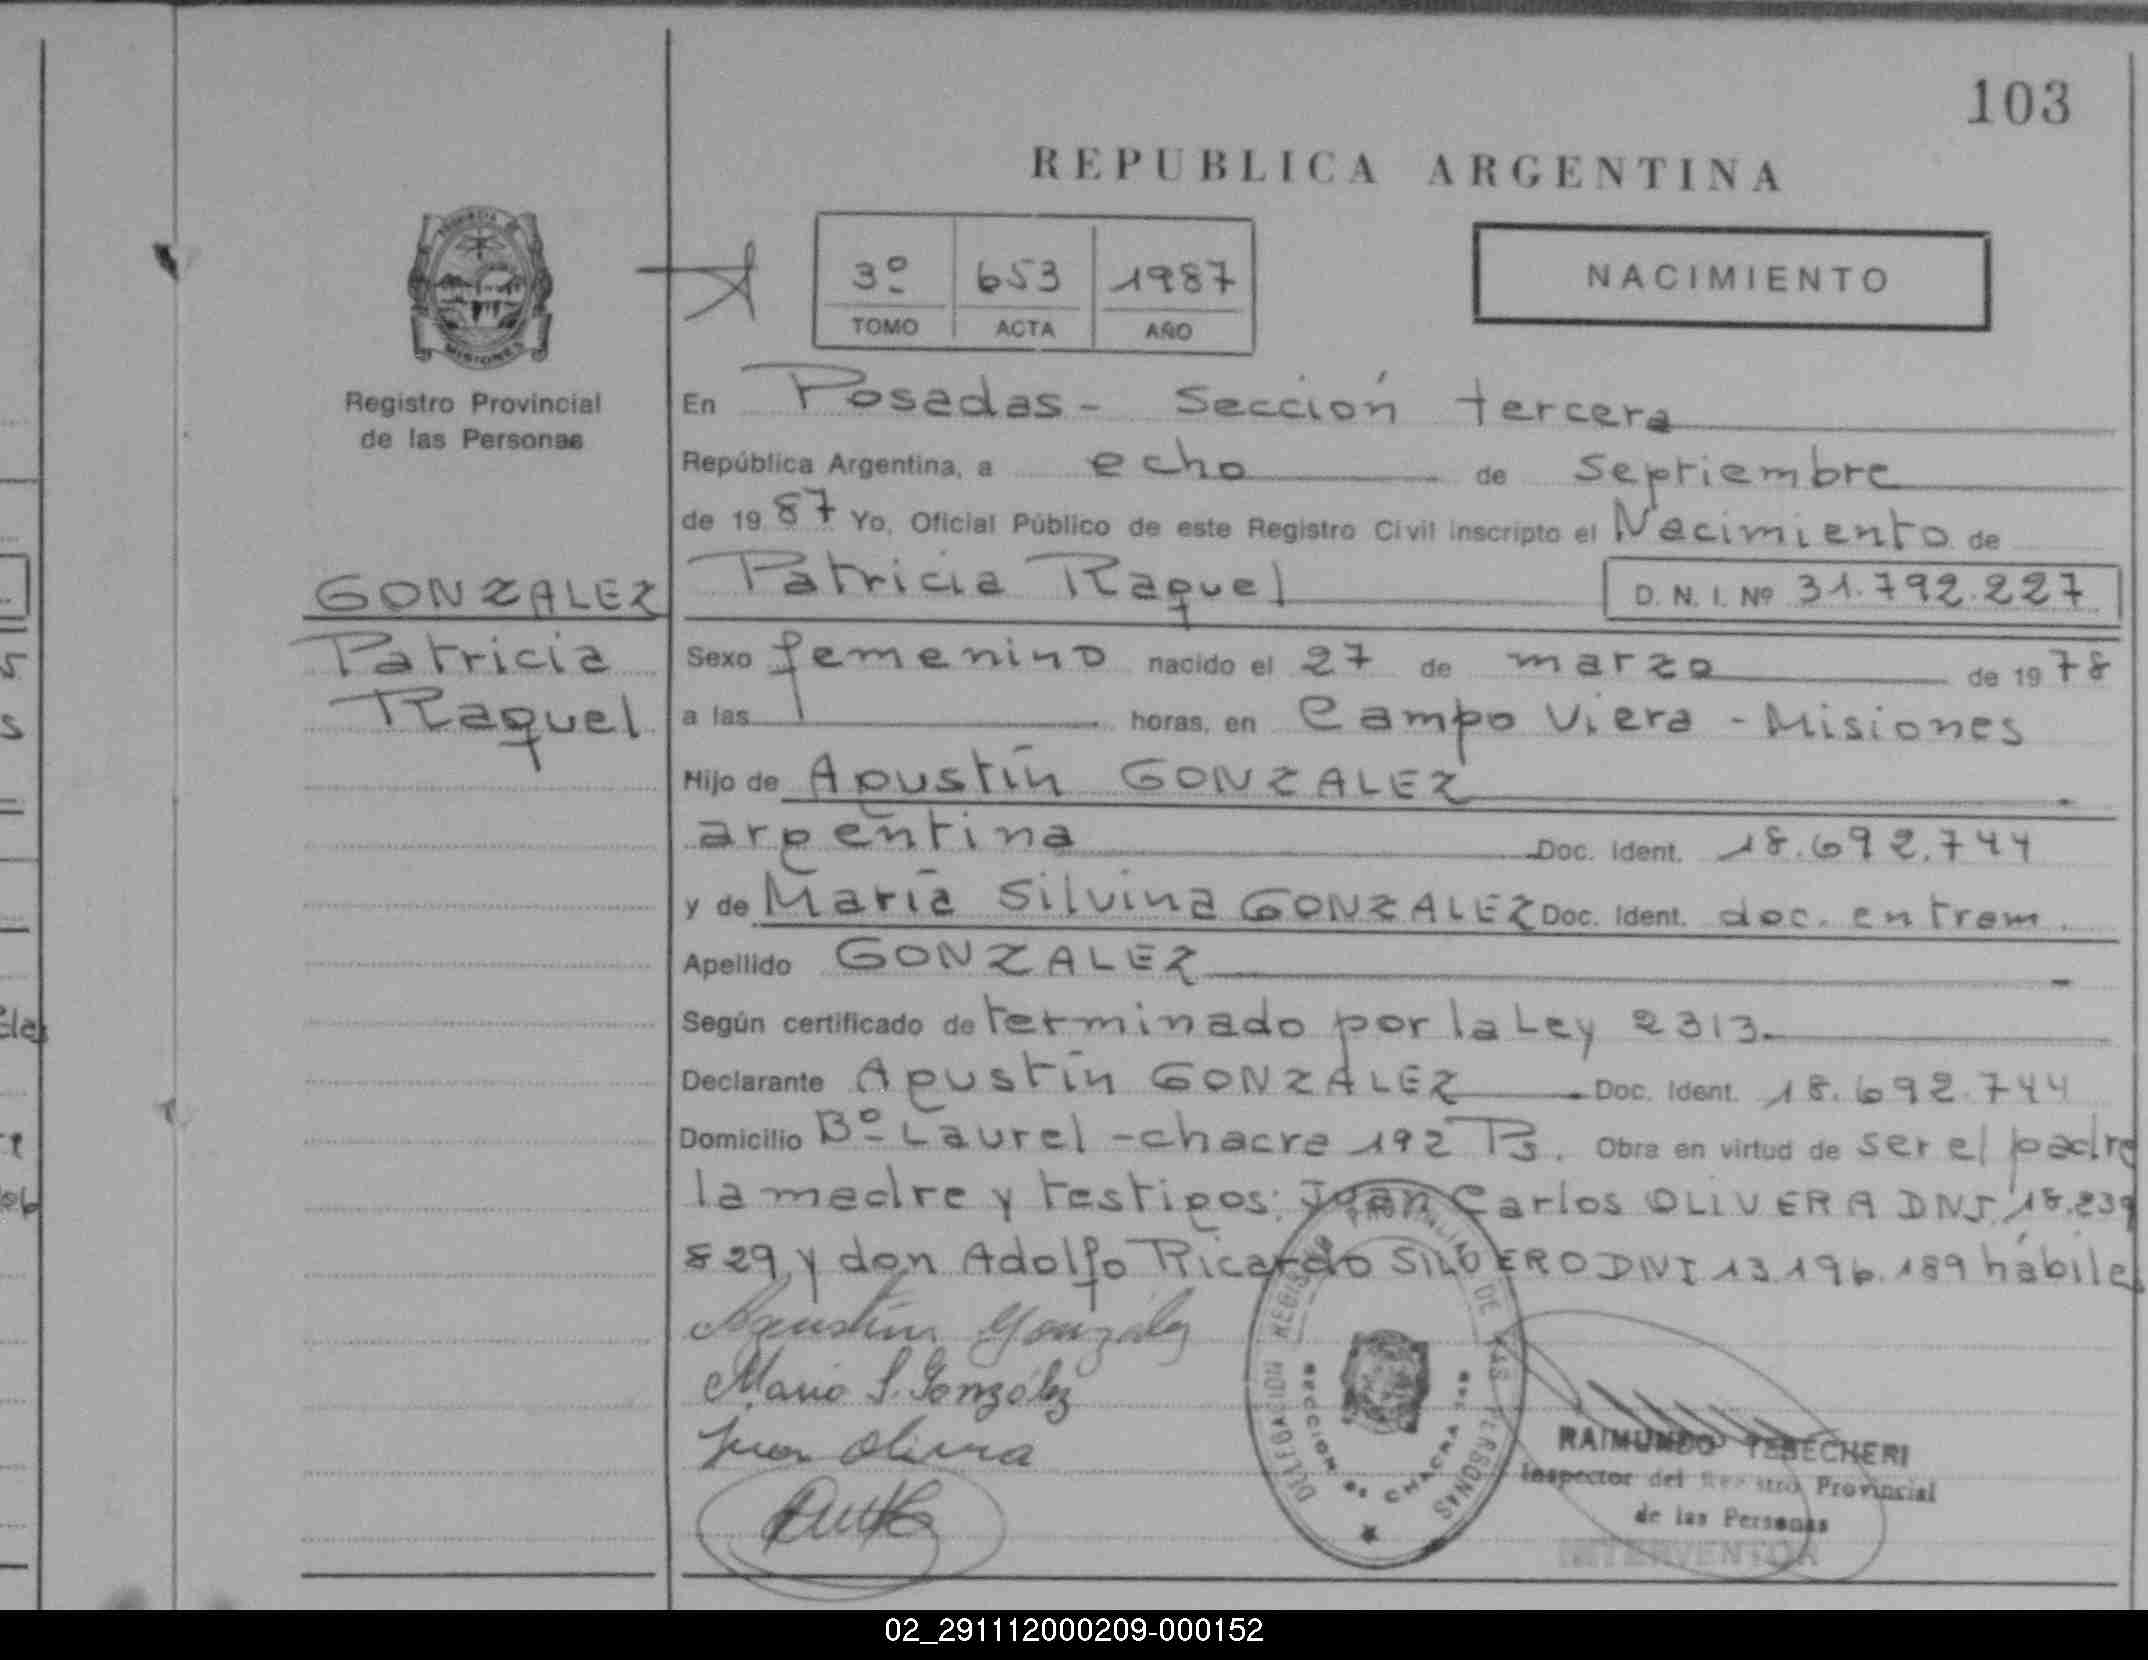 103
REPUBLICA ARGENTINA
3º 653 1987
TOMO ACTA AÑO
NACIMIENTO
MISIONES
Registro Provincial
de las Personas
En Posadas - Sección tercera
República Argentina, a ocho de septiembre
de 1987 Yo, Oficial Público de este Registro Civil inscripto el Nacimiento de
GONZALEZ Patricia Raquel D. N. I. Nº 31.792.227
Patricia
Raquel
Sexo femenino nacido el 27 de marzo de 1978
a las horas, en Campo Viera - Misiones
Hijo de Agustín GONZALEZ
argentina Doc. Ident. 18.692.744
y de María Silvina GONZALEZ Doc. Ident. doc. en tram.
Apellido GONZALEZ
Según certificado determinado por la Ley 2313.
Declarante Agustín GONZALEZ Doc. Ident. 18.692.744
Domicilio Bº Laurel - chacra 192 Ps. Obra en virtud de ser el padre
la madre y testigos: Juan Carlos OLIVERA DNI. 18.239
829 y don Adolfo Ricardo SILVERO DNI 13.196.189 hábiles
Agustín González
María S. González
Juan Olivera
DELEGACION REGISTRO PROVINCIAL DE LAS PERSONAS
SECCION 3a. CHACRA
RAIMUNDO TEBECHERI
Inspector del Registro Provincial
de las Personas
INTERVENTOR
02_291112000209-000152